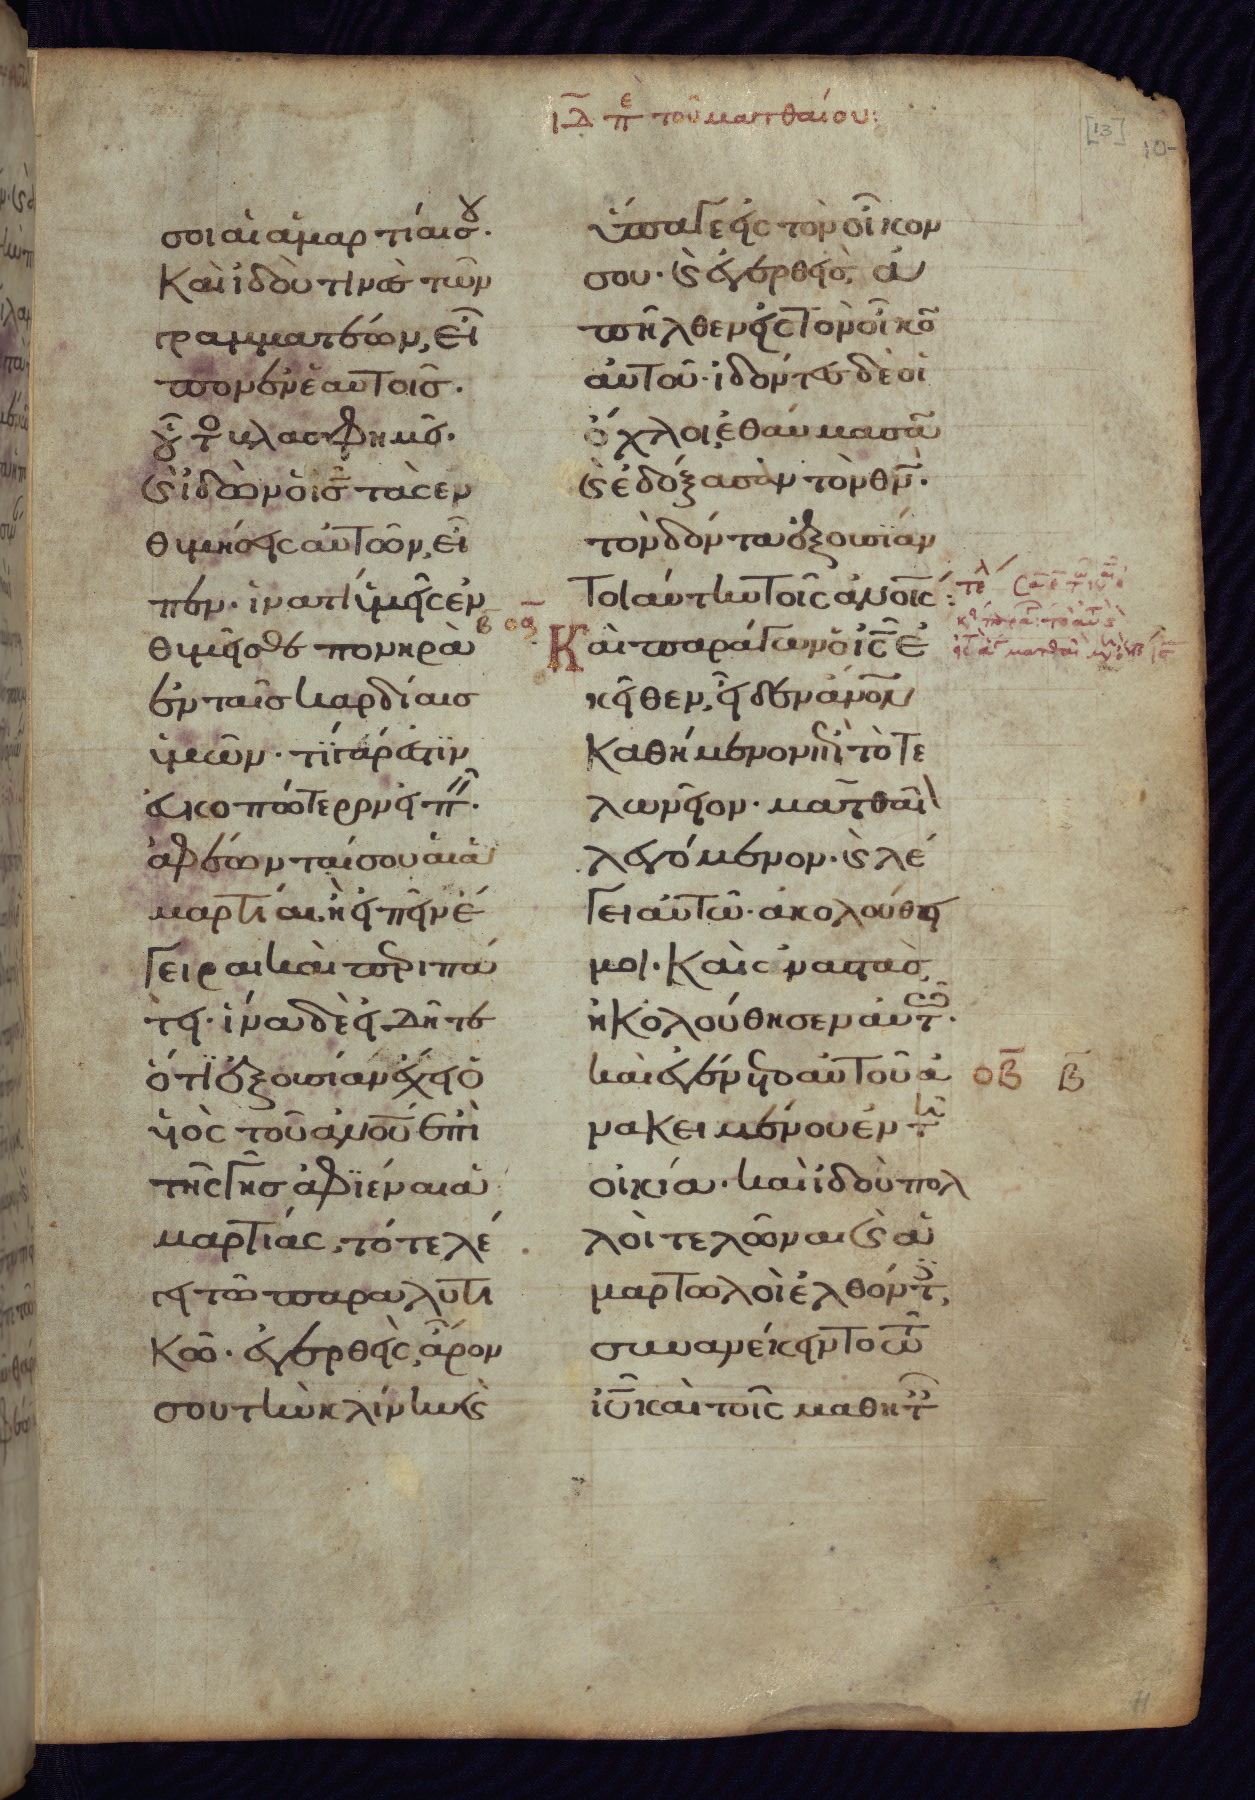 ΙΔ π̅ε τοῦ ματθαίου:
[13]
10-
σοι αἱ ἁμαρτίαι σου.
Καὶ ἰδού τινὲς τῶν
γραμματέων, εἶ
πον ἐν ἑαυτοῖς.
οὗτο βλασφημεῖ.
ϗ ἰδὼν ὁ ις̅ τὰς ἐν
θυμήσεις αὐτῶν, εἶ
πεν. ἱνατί ὑμεῖς ἐν
θυμεῖσθε πονηρὰ
ἐν ταῖς καρδίαις
ὑμῶν. τί γάρ ἐστιν
εὐκοπώτερον εἰπεῖν.
ἀφέωνταί σου αἱ ἁ
μαρτίαι. ἢ εἰπεῖν ἔ
γειραι καὶ περιπά
τει. ἵνα δὲ εἰδῆτε
ὅτι ἐξουσίαν ἔχει ὁ
υἱὸς τοῦ ἀνου̅ ἐπὶ
τῆς γῆς ἀφϊέναι ἁ
μαρτίας, τότε λέ
γει τῶ παραλυτι
κῶ. ἐγερθεὶς, ἆρόν
σου τὴν κλίνην ϗ
ὕπαγε εἰς τὸν οἶκόν
σου. ϗ ἐγερθεὶς, ἀ
πῆλθεν εἰς τὸν οἶκο̅
αὐτοῦ. ἰδόντες δὲ οἱ
ὄχλοι, ἐθαύμασα̅
ϗ ἐδόξασαν τὸν θν̅.
τὸν δόντα ἐξουσίαν
τοιαύτην τοῖς ἀνοις̅:
τελ
Β οα̅
Καὶ παράγων ὁ ις̅ ἐ
κεῖθεν, εἶδεν ἀνον̅
καθήμενον ἐπὶ τὸ τε
λωνεῖον. ματθαῖ
λεγόμενον. ϗ λέ
γει αὐτῶ. ἀκολούθει
μοι. Καὶ ἀναστὰς,
ἠκολούθησεν αὐτῶ.
καὶ ἐγένετο αὐτοῦ ἀ
οβ̅ β̅
νακειμένου ἐν τῆ
οἰκία. καὶ ἰδοὺ πολ
λοὶ τελῶναι ϗ ἁ
μαρτωλοὶ ἐλθόντες,
συνανέκειντο τῶ
ιυ̅ καὶ τοῖς μαθητ
11